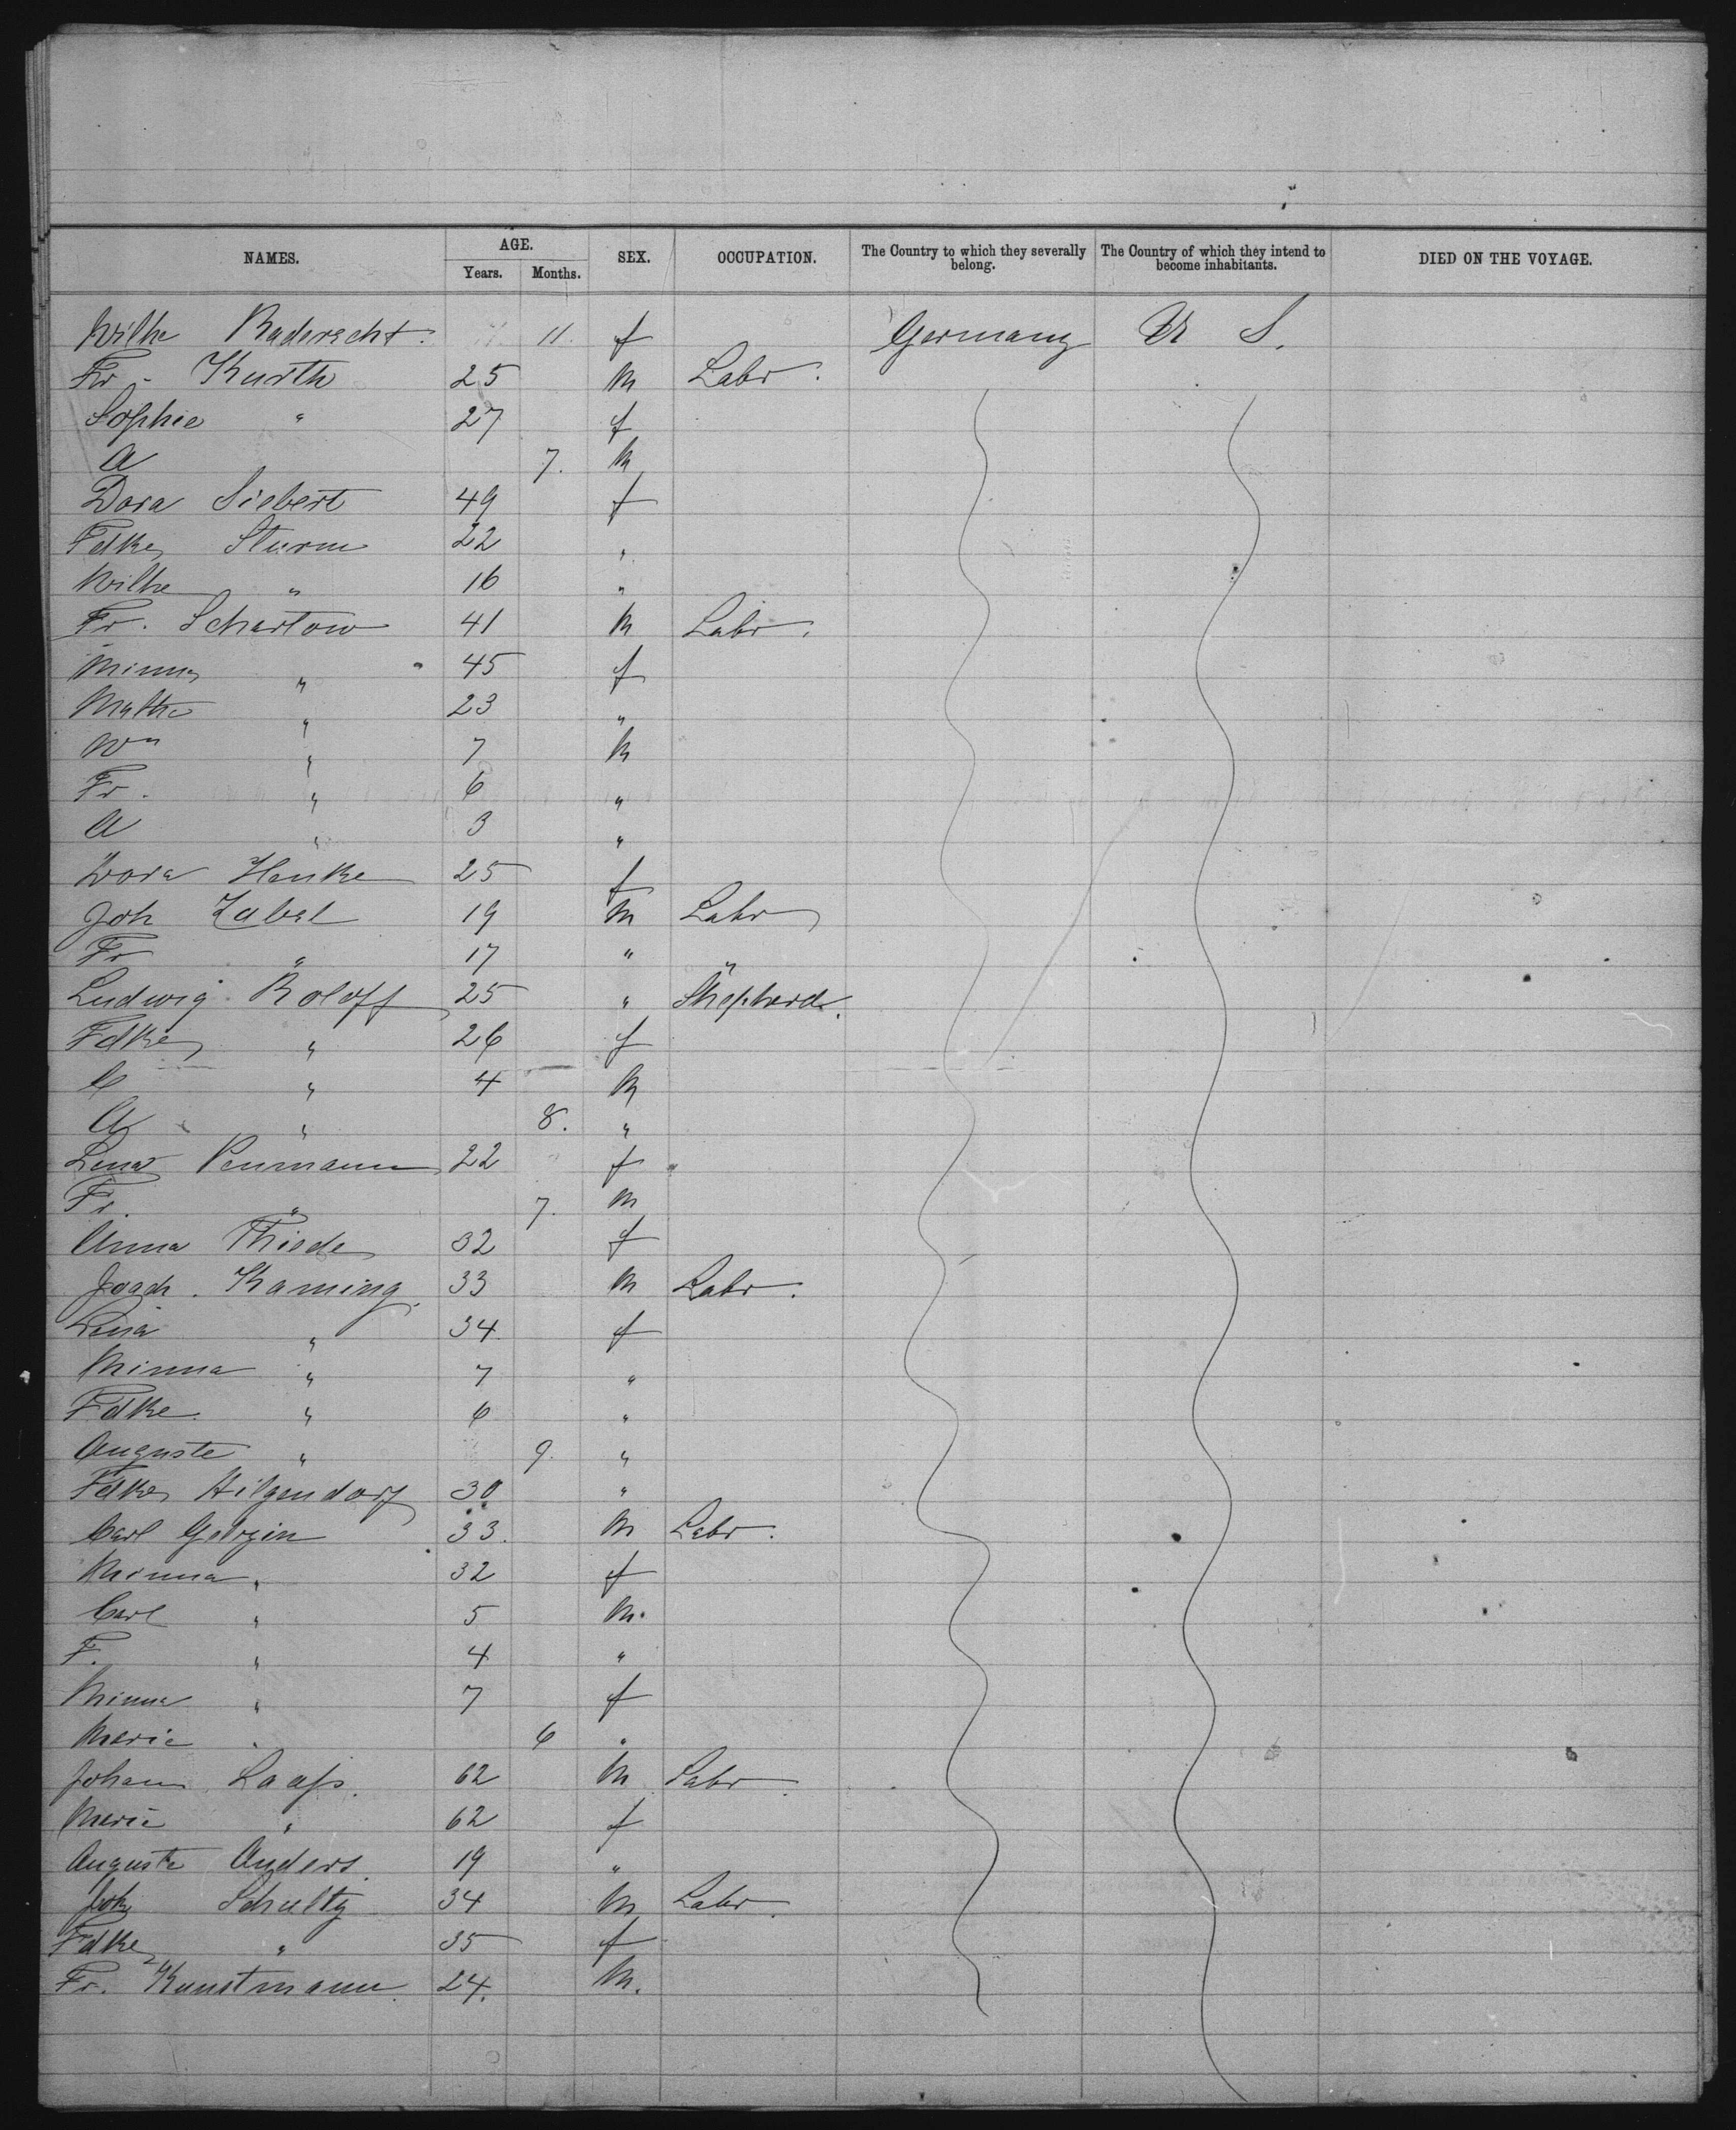 NAMES. AGE. Years. Months. SEX. OCCUPATION. The Country to which they severally belong. The Country of which they intend to become inhabitants. DIED ON THE VOYAGE.
Wilhe Raderecht. 11. f Germany U S.
Fr. Kurth 25 m Labr.
Sophie " 27 f
A 7. m
Dora Siebert 49 f
Fdke Sturm 22 "
Wilhe " 16 "
Fr. Schartow 41 m Labr.
Minna " 45 f
Mathe " 23 "
Wm " 7 m
Fr. " 6 "
A " 3 "
Dora Henke 25 f
Joh Zabel 19 m Labr
Fr " 17 " "
Ludwig Roloff 25 " Shepherd.
Fdke " 26 f
C " 4 m
A " 8. "
Lena Penmann 22 f
Fr. " 7. m
Anna Thiede 32 f
Joach. Kaming. 33 m Labr.
Lena " 34 f
Minna " 7 "
Fdke " 6 "
Auguste " 9. "
Fdke Hilgendorf 30 "
Carl Gelrzin 33. m Labr.
Minna " 32 f
Carl " 5 m.
F. " 4 "
Minna " 7 f
Marie " 6 "
Johann Laafs. 62 m Labr.
Marie " 62 f
Auguste Anders. 19 "
Joh Schultz 34 m Labr.
Fdke " 35 f
Fr. Kunstmann. 24. m.